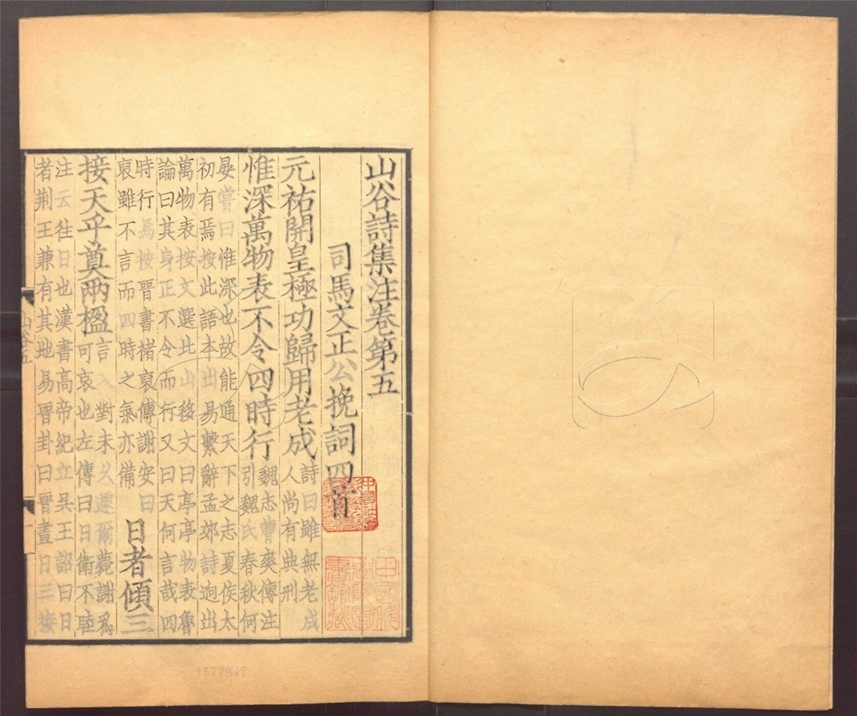 山谷詩集注卷第五
司馬文正公挽詞四首
元祐開皇極功歸用老成詩曰雖無老成人尚有典刑
惟深萬物表不令四時行魏志曹爽傳注引魏氏春秋何
晏嘗曰惟深也故能通天下之志夏侯太
初有焉按此語本出易繫辭孟郊詩迥出
萬物表按文選北山移文曰亭亭物表魯
論曰其身正不令而行又曰天何言哉四
時行焉按晉書褚裒傳謝安曰
裒雖不言而四時之氣亦備日者傾三
接天乎奠兩楹言入對未久遽爾薨謝為可哀也左傳曰日衛不睦
注云往日也漢書高帝紀立吳王詔曰日
者荆王兼有其地易晉卦曰晉晝日三接
山谷五
1572847